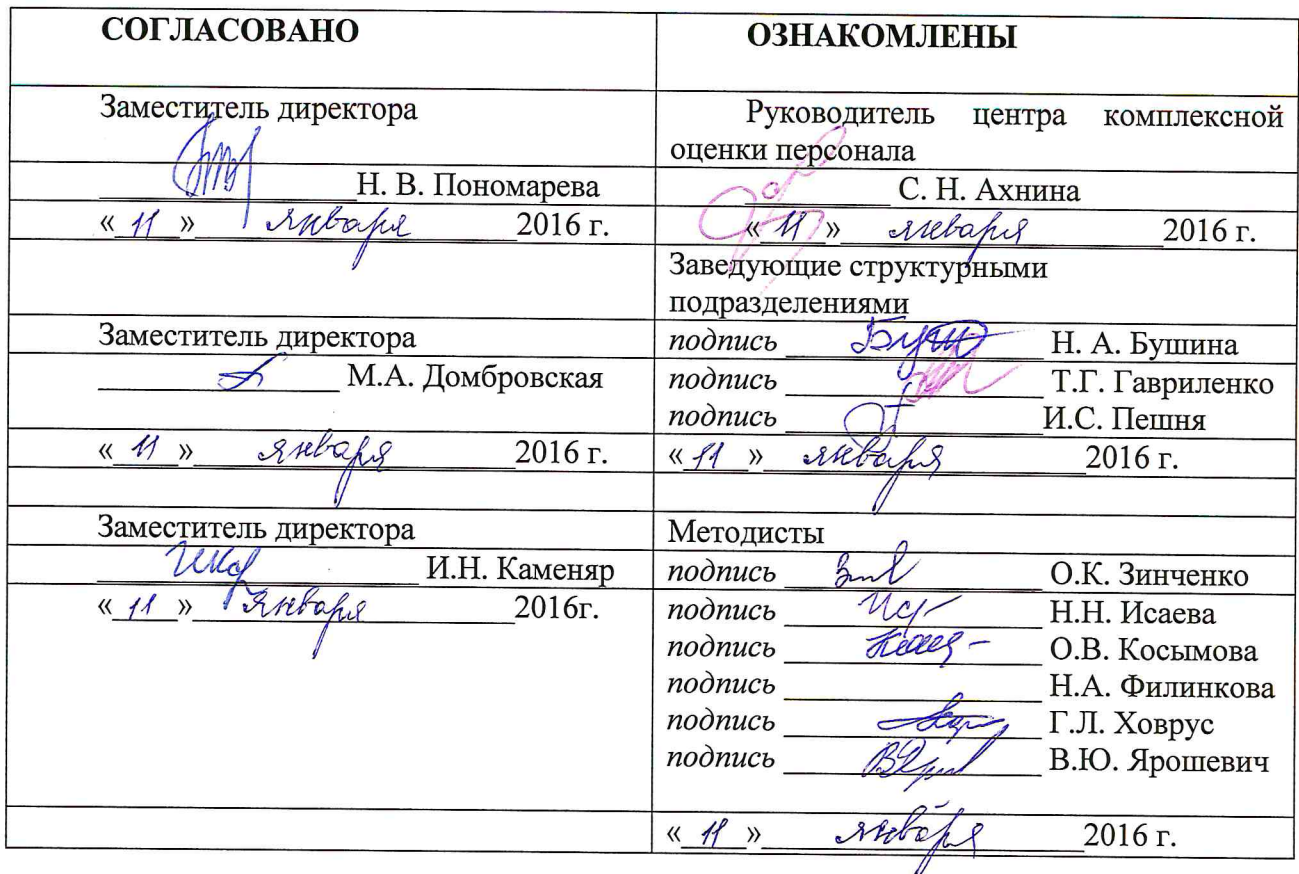 СОГЛАСОВАНО
ОЗНАКОМЛЕНЫ
Заместитель директора
Н. В. Пономарева
« 11 » января 2016 г.
Руководитель центра комплексной
оценки персонала
С. Н. Ахнина
« 11 » января 2016 г.
Заведующие структурными
подразделениями
Заместитель директора
М.А. Домбровская
« 11 » января 2016 г.
подпись Н. А. Бушина
подпись Т.Г. Гавриленко
подпись И.С. Пешня
« 11 » января 2016 г.
Заместитель директора
И.Н. Каменяр
« 11 » января 2016г.
Методисты
подпись О.К. Зинченко
подпись Н.Н. Исаева
подпись О.В. Косымова
подпись Н.А. Филинкова
подпись Г.Л. Ховрус
подпись В.Ю. Ярошевич
« 11 » января 2016 г.